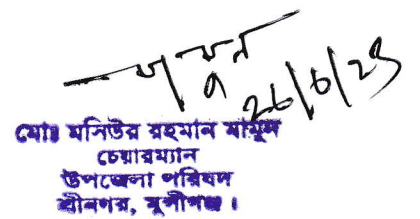 26/6/25
মোঃ মসিউর রহমান মামুন
চেয়ারম্যান
উপজেলা পরিষদ
শ্রীনগর, মুন্সীগঞ্জ।